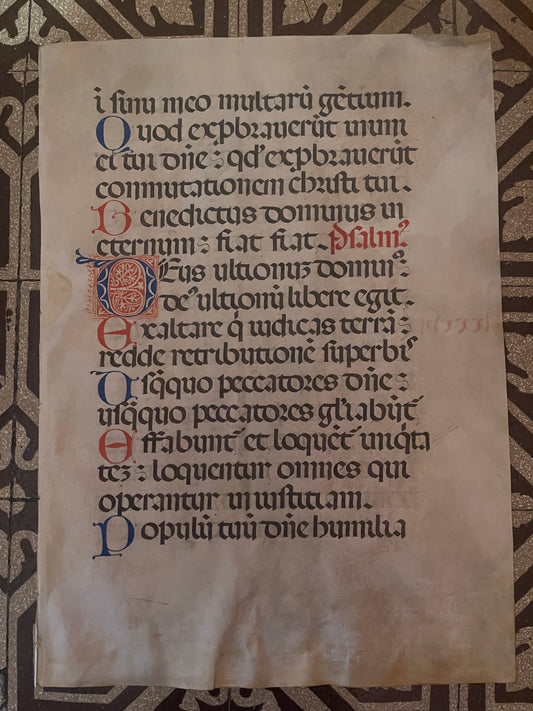 i sinu meo multarū gētium.
Quod exprbraverūt inimi
ci tui dn̄e : qd' exprbraverūt
conmutationem christi tui.
Benedictus dominus in
eternum : fiat fiat. Psalmꝰ
DEus ultionuz dominꝰ :
deꝰ ultionū libere egit.
Exaltare q̄ iudicas terrā :
redde retributionē superbiꝰ
Usq̄quo peccatores dn̄e :
usq̄quo peccatores gl'iabūt̄
Effabunt̄ et loquēt̄ iniq̄ta
tez : loquentur omnes qui
operantur iniustitiam.
Populū tuū dn̄e humilia